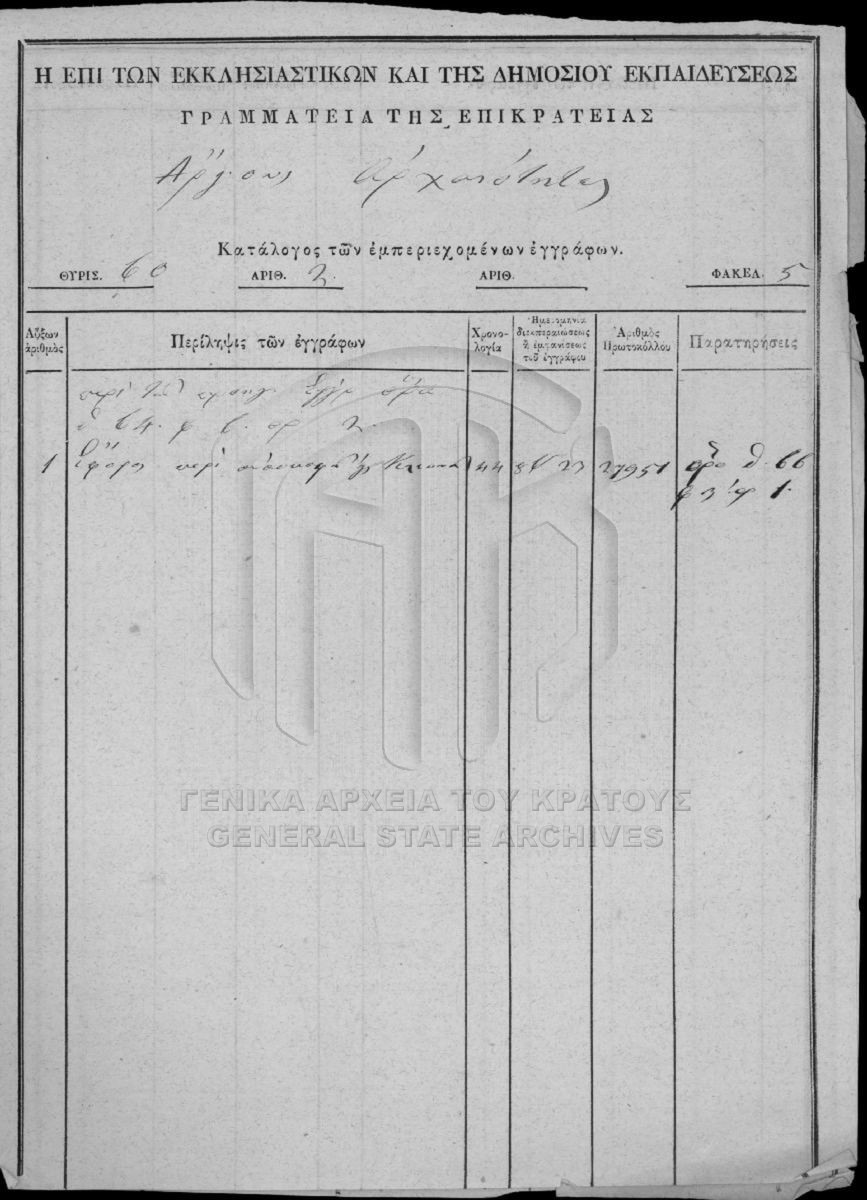 Η ΕΠΙ ΤΩΝ ΕΚΚΛΗΣΙΑΣΤΙΚΩΝ ΚΑΙ ΤΗΣ ΔΗΜΟΣΙΟΥ ΕΚΠΑΙΔΕΥΣΕΩΣ
ΓΡΑΜΜΑΤΕΙΑ ΤΗΣ ΕΠΙΚΡΑΤΕΙΑΣ
Ἄργους Ἀρχαιότητες
Κατάλογος τῶν ἐμπεριεχομένων ἐγγράφων.
ΘΥΡΙΣ. 60 ΑΡΙΘ. 2. ΑΡΙΘ. ΦΑΚΕΛ. 5
Αὔξων ἀριθμὸς
Περίληψις τῶν ἐγγράφων
Χρονολογία
Ἡμερομηνία διεκπεραιώσεως ἢ ἐμφανίσεως τοῦ ἐγγράφου
Ἀριθμὸς Πρωτοκόλλου
Παρατηρήσεις
περὶ τῶν
θ 64. φ 6. αρ 2.
1 Ἔφορος περὶ 44 23 27951 θ. 66
1.
ΓΕΝΙΚΑ ΑΡΧΕΙΑ ΤΟΥ ΚΡΑΤΟΥΣ
GENERAL STATE ARCHIVES